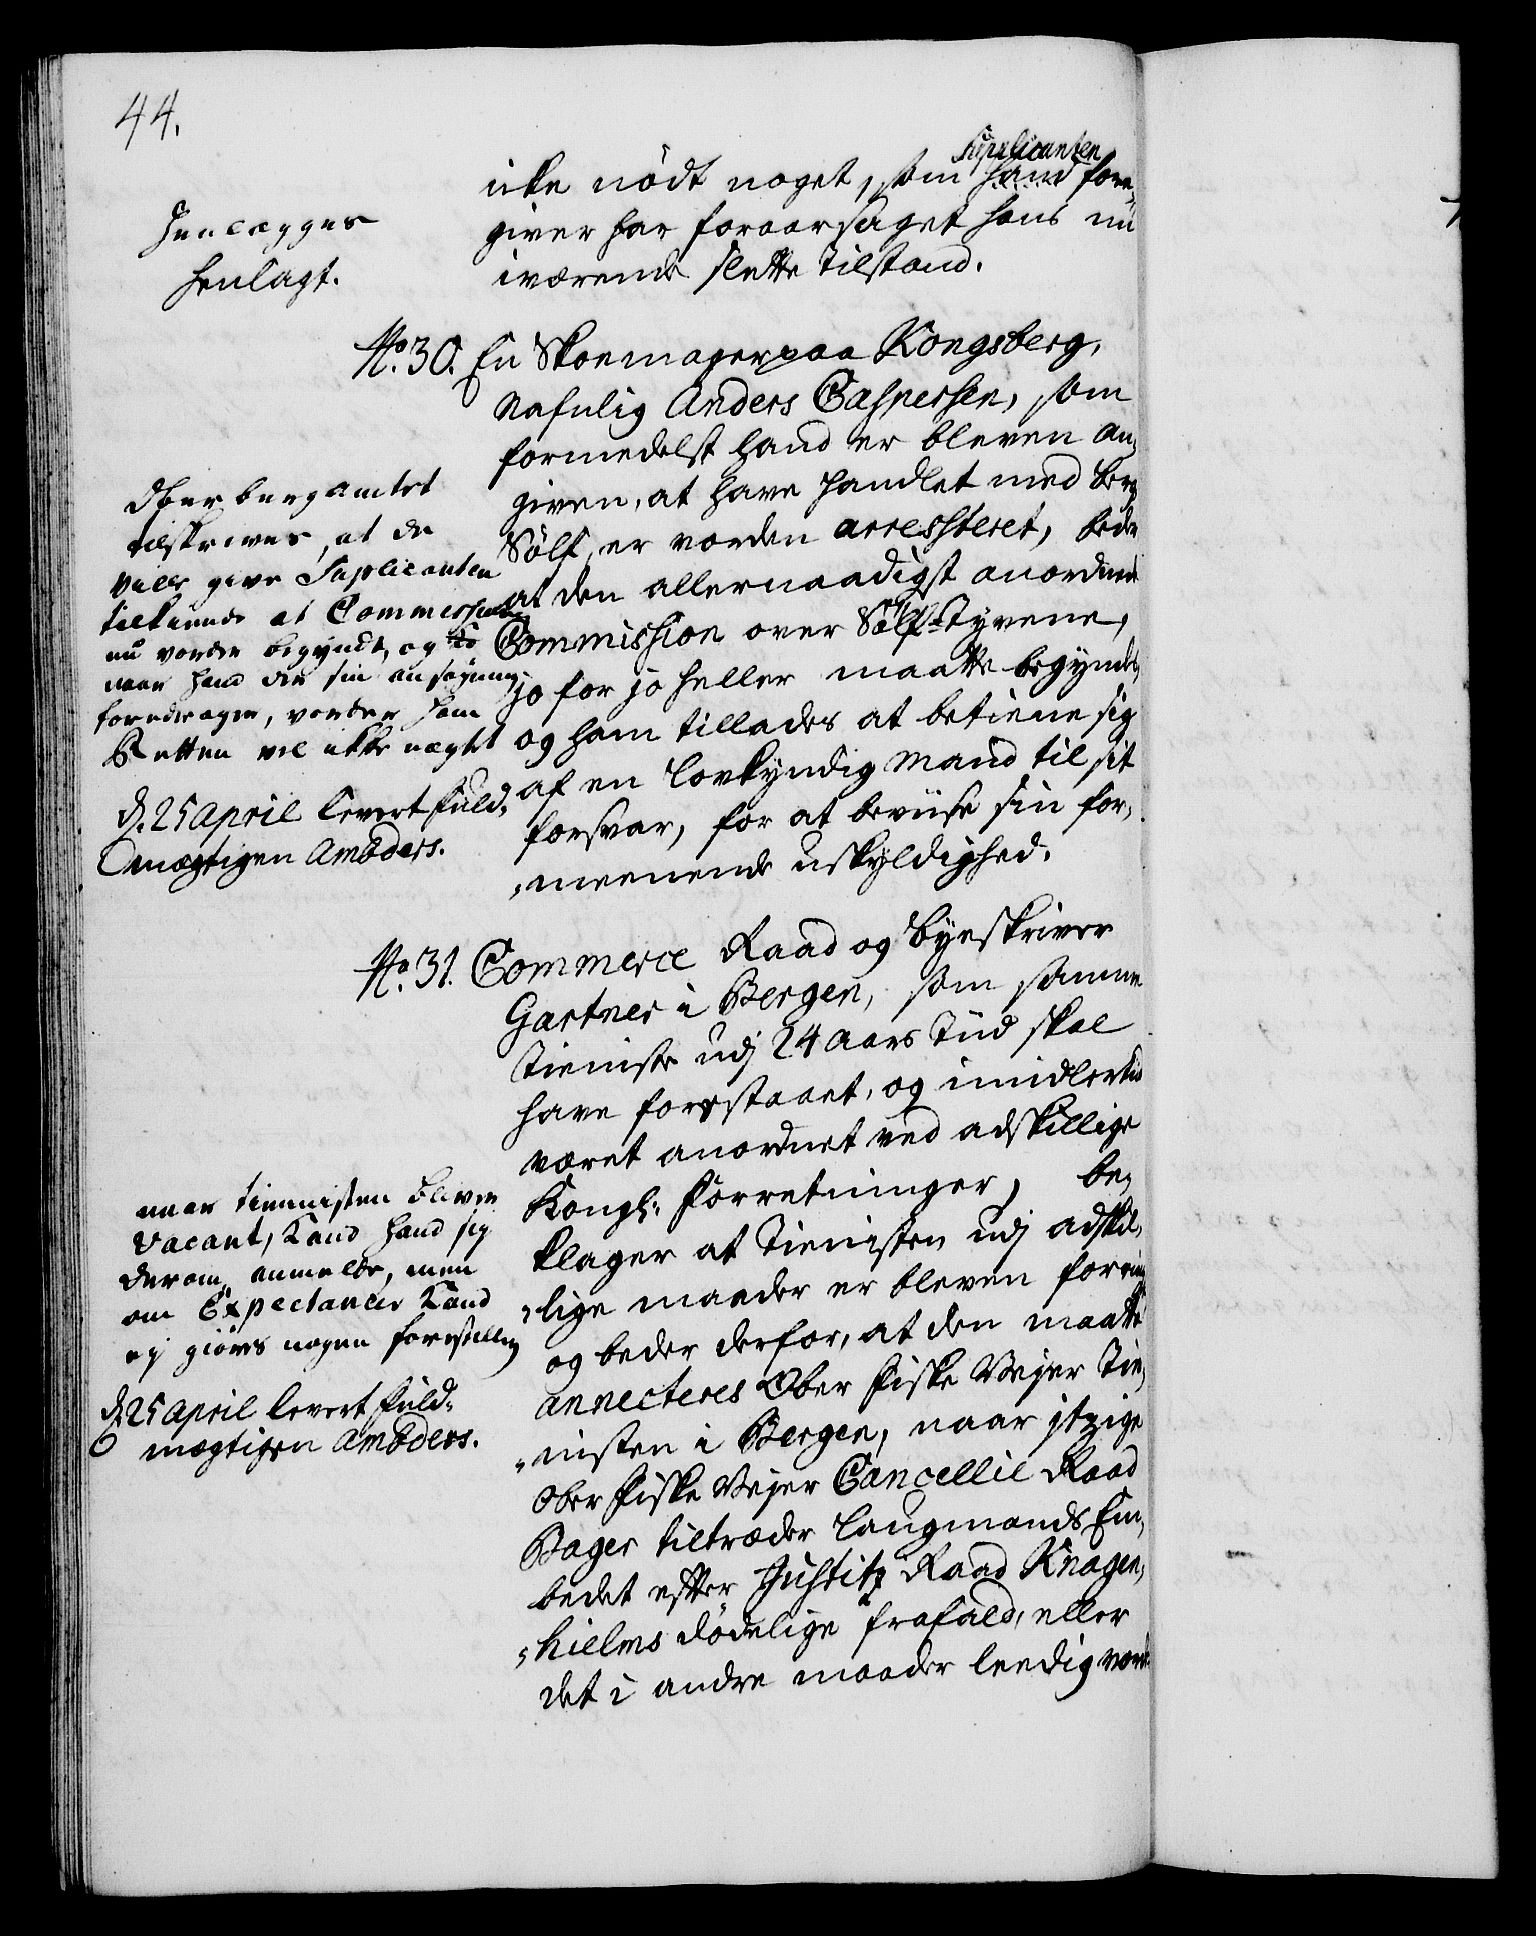 44.
Supplicanten
icke nödt noget, som hand fore-
giver har foraarsaget hans nu
iværende slette Tilstand.
Henlegges
henlagt.
No. 30. En Skoemager paa Kongsberg,
Nafnlig Anders Caspersen, som
formedelst hand er bleven an-
given, at have handlet med Berg
Sölf, er vorden arresteret, beder
at den allernaadigst anordnede
Commission over Sölf-Tyvene,
jo for jo heller maatte begyndes,
og ham tillades at betiene sig
af en Lovkyndig Mand til sit
forsvar, for at beviise sin for-
meenende uskyldighed.
Oberbergamtet
tilskrives, at de
ville give Suplicanten
tilkiende at Commissionen
nu vorder begyndt, og
naar hand der sin ansøgning
foredrager, vorder ham
Retten vel ikke nægtet
d. 25 April levert fuld-
mægtigen Ambders.
No. 31. Commerce Raad og Byeskriver
Gartner i Bergen, som samme
Tieniste udj 24 Aars Tiid skal
have forestaaet, og imidlertid
været anordnet ved adskillige
Kongl: Forretninger, be-
klager at Tienisten udj adskil-
lige maader er bleven forring
og beder derfor, at den maatte
annecteres Ober Fiske Vejer Tie-
nisten i Bergen, naar jtzige
Ober Fiske Vejer Cancellie Raad
Bager tiltræder Laugmands Em-
bedet efter Justitz Raad Knagen-
hielms dödelige frafald, eller
det i andre maader leedig vord
naar tiennisten bliver
Vacant, kand hand sig
derom anmelde, men
om Expectancer kand
ej giöres nogen forestilling
d. 25 April levert fuld-
mægtigen Ambders.